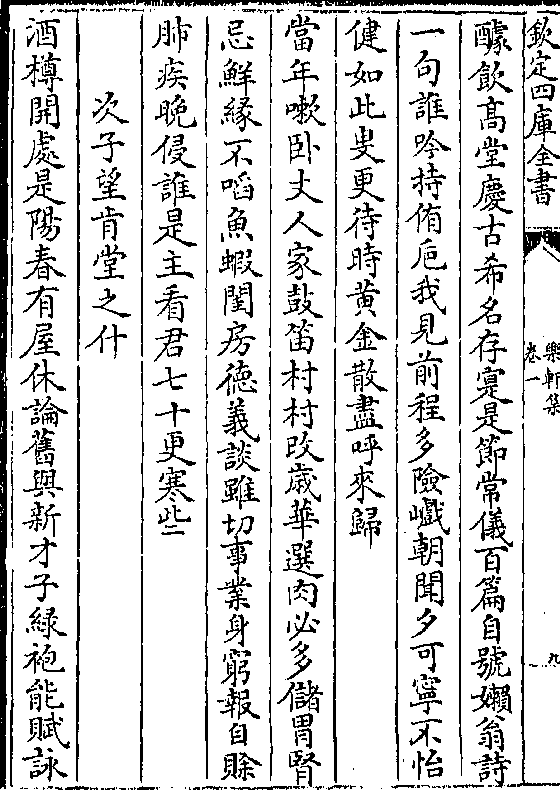 欽定四庫全書
樂軒集
卷一
九
醵飲高堂慶古希名存寔是節常儀百篇自號嬾翁詩
一句誰吟持侑巵我見前程多險巇朝聞夕可寧不怡
健如此叟更待時黃金散盡呼來歸
當年嗽卧丈人家鼓笛村村改歲華選肉必多儲胃腎
忌鮮緣不啗魚蝦閨房徳義談雖切事業身窮報自賖
肺疾晚侵誰是主看君七十更寒些
次子望肯堂之什
酒樽開處是陽春有屋休論舊與新才子緑袍能賦詠